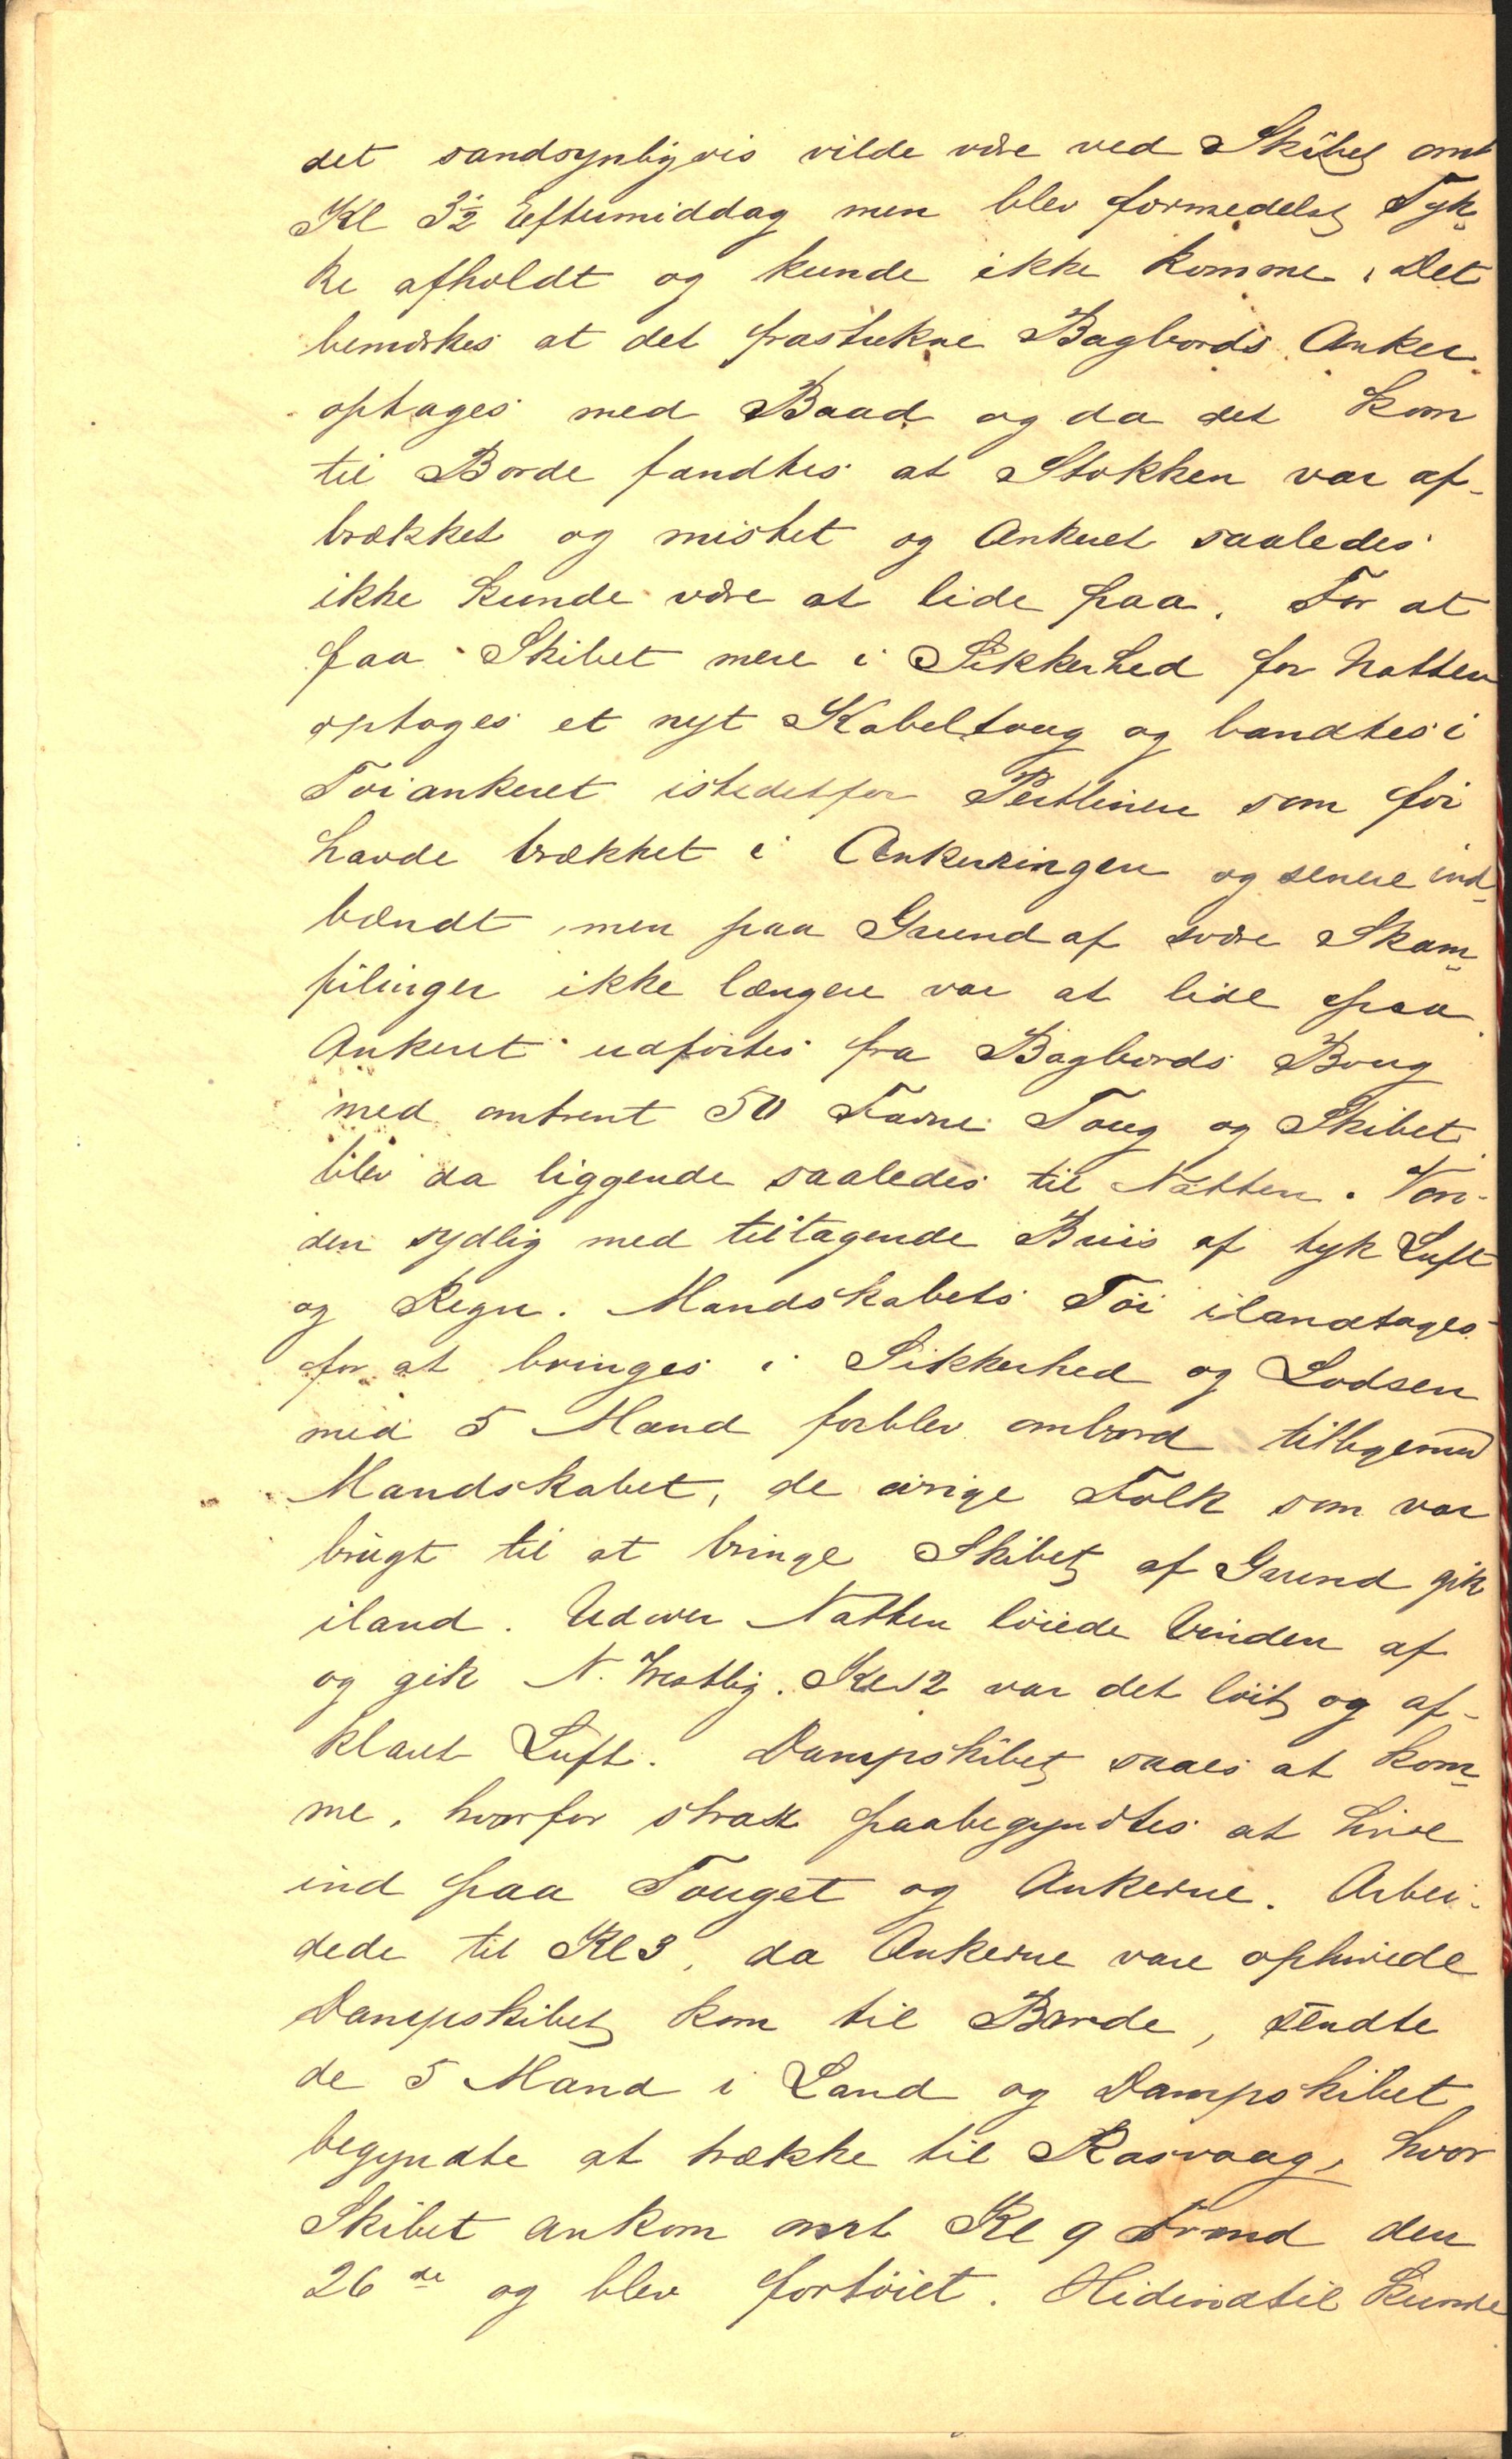 det sandsynligvis vilde være ved Skibet omt
Kl 3½ Eftermiddag men blev formedelst Tyk-
ke afholdt og kunde ikke komme. Det
bemærkes at det frastukne Bagbords Anker
optages med Baad og da det kom
til Borde fandtes at Stokken var af-
brækket og mistet og Ankeret saaledes
ikke kunde være at lide paa. For at
faa Skibet mere i Sikkerhed for Natten
optoges et nyt Kabeltoug og bandtes i
Töiankeret istedetfor Pertlinen som för
havde brækket i Ankerringen og senere ind-
bændt, men paa Grund af svære Skam-
filinger ikke længere var at lide paa
Ankeret udförtes fra Bagbords Boug
med omtrent 50 Favne Toug og Skibet
blev da liggende saaledes til Natten. Vin-
den sydlig med tiltagende Briis af tyk Luft
og Regn. Mandskabets Töi ilandtages
for at bringes i Sikkerhed og Lodsen
med 5 Mand forblev ombord tilligemed
Mandskabet, de övrige Folk som var
brugt til at bringe Skibet af Grund gik
iland. Udover Natten löiede Vinden af
og gik N. Vestlig. Kl 12 var det löit og af-
klaret Luft. Dampskibet saaes at kom-
me, hvorfor strax paabegyndtes at hive
ind paa Touget og Ankerne. Arbei-
dede til Kl 3, da Ankerne vare ophivede
Dampskibet kom til Borde, sendte
de 5 Mand i Land og Dampskibet
begyndte at trække til Rasvaag, hvor
Skibet ankom omt Kl 9 Formd den
26de og blev fortöiet. Hidindtil kunde